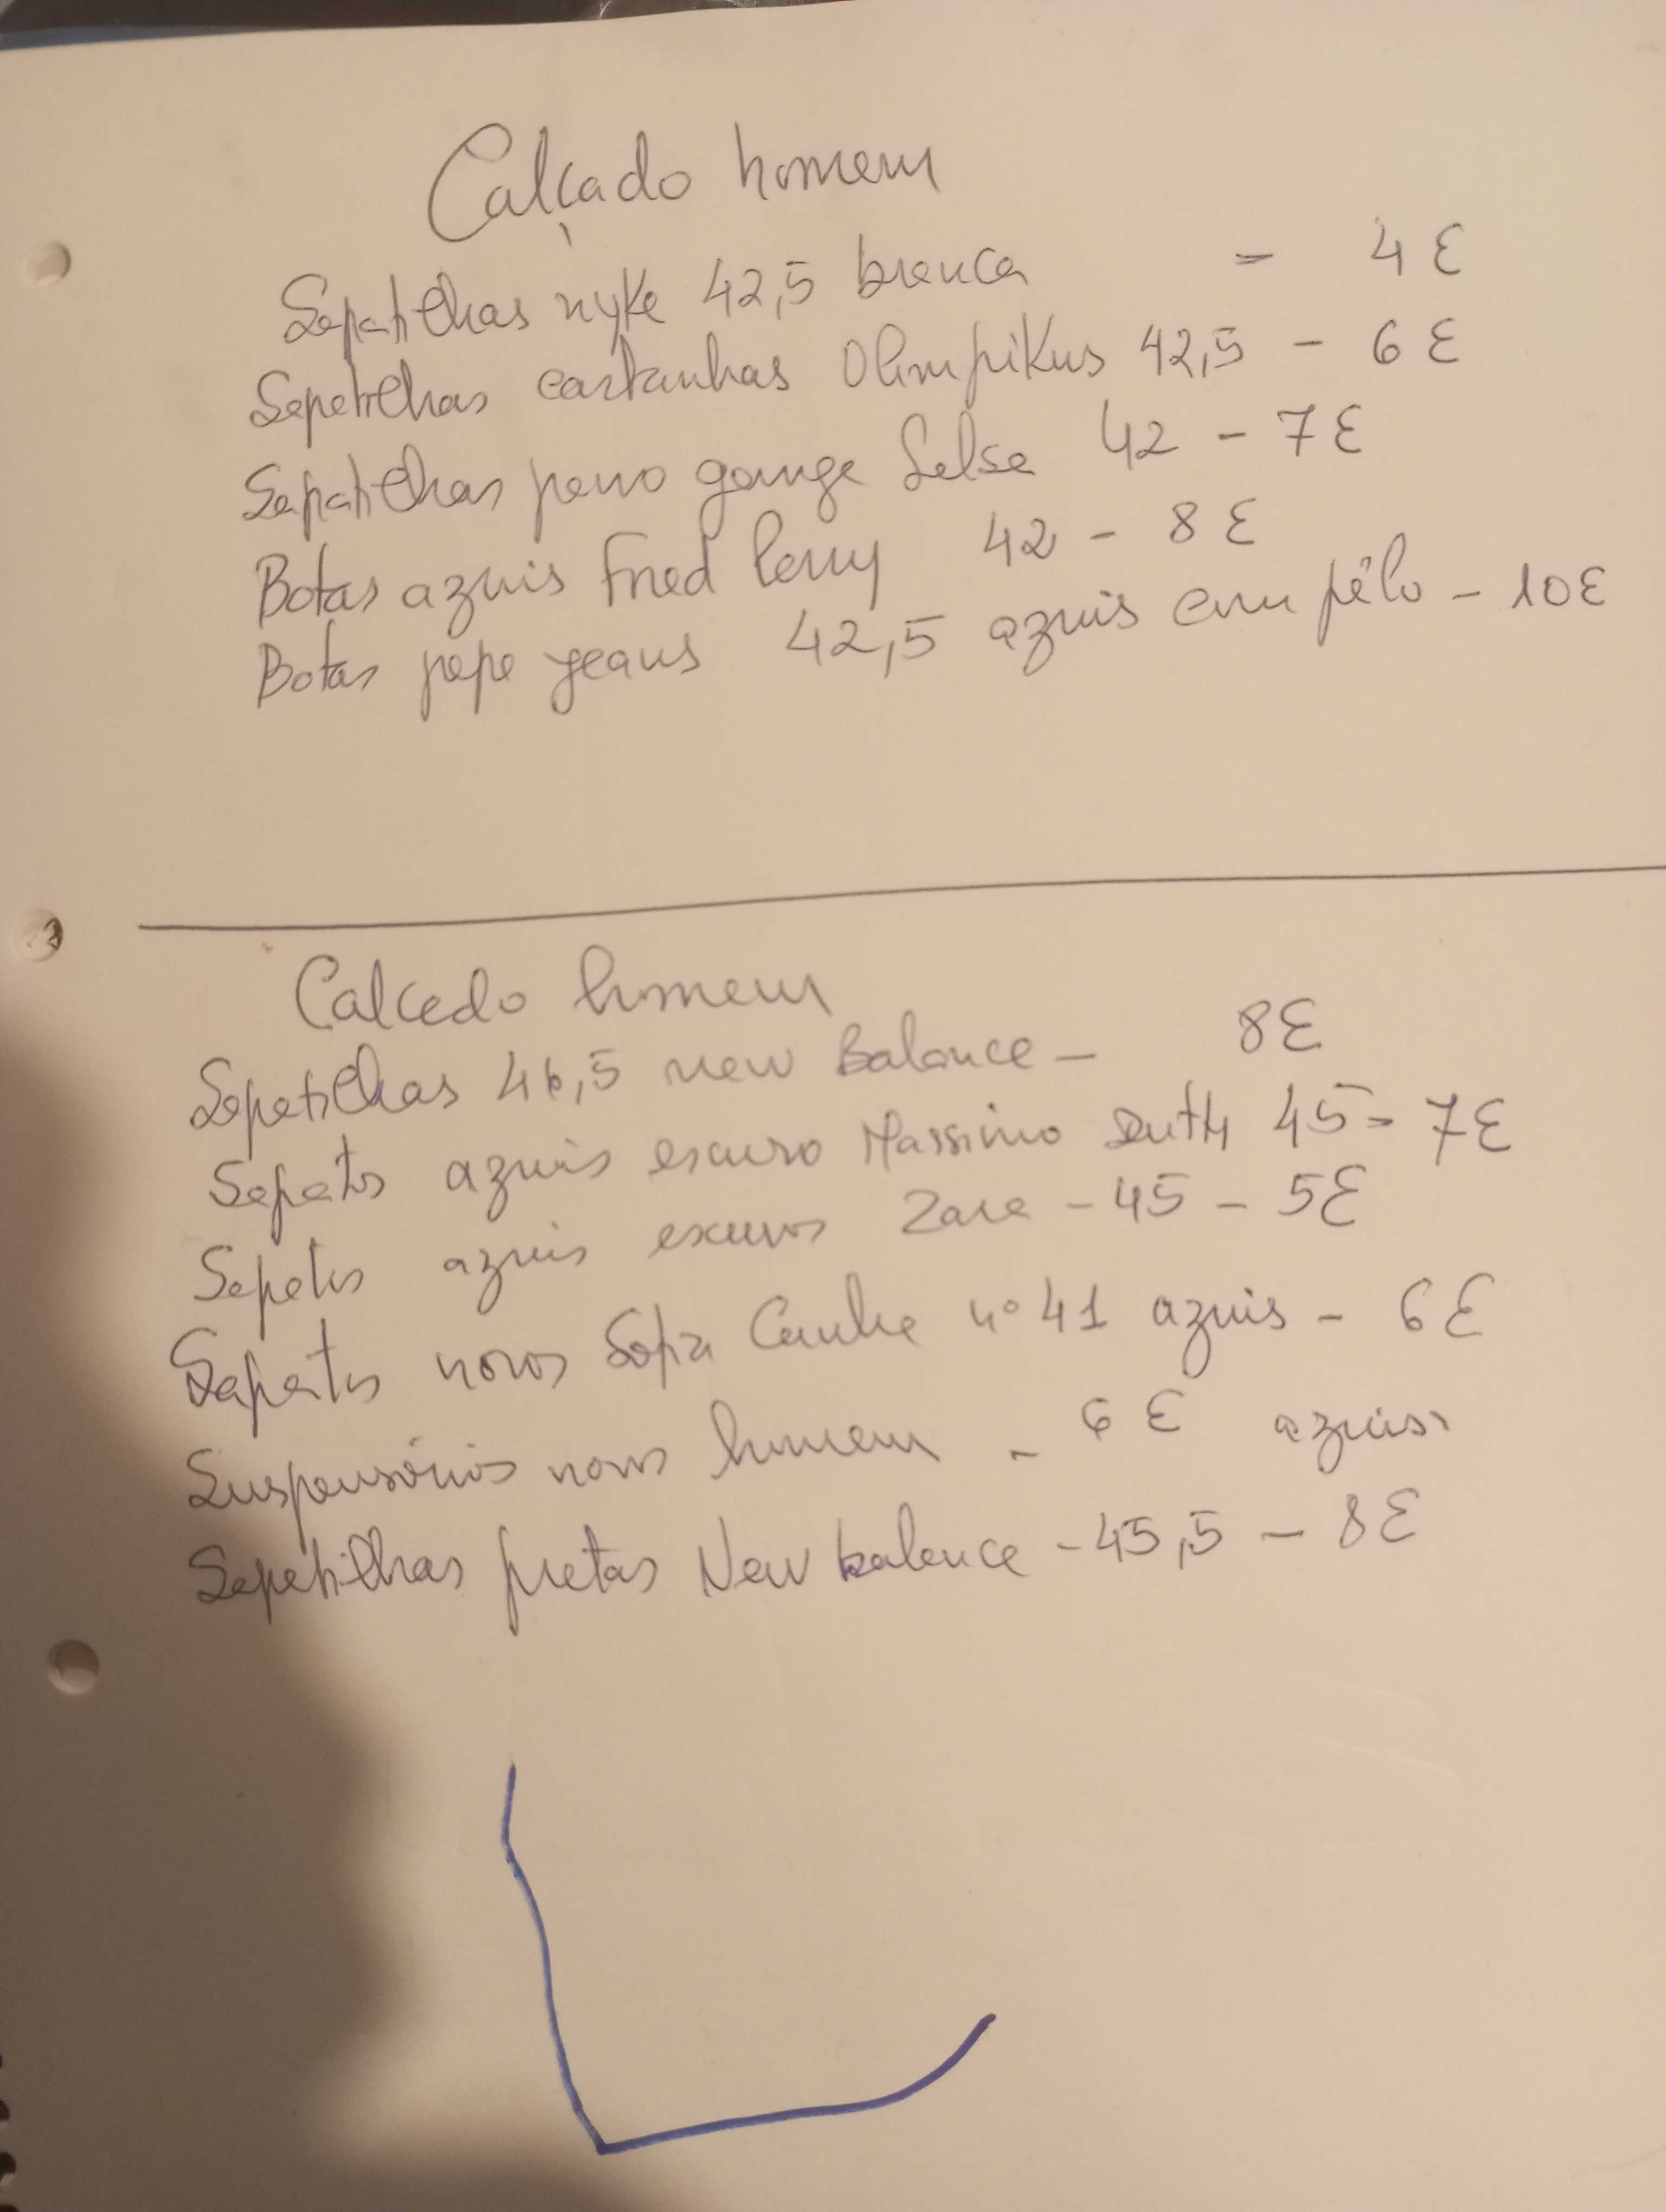 Calçado homem
Sapatilhas nyke 42,5 branca = 4 €
Sapatilhas castanhas Olimpikus 42,5 - 6 €
Sapatilhas pano ganga Salsa 42 - 7 €
Botas azuis Fred Perry 42 - 8 €
Botas pepe jeans 42,5 azuis com pêlo - 10 €
Calcado homem
Sapatilhas ,5 new Balance - 8 €
Sapatos azuis escuro Massimo Dutti 45 = 7 €
Sapatos azuis escuros Zara - 45 - 5 €
Sapatos novos nº 41 azuis - 6 €
Suspensórios novos homem - 6 € azuis
Sapatilhas pretas New balance - 45,5 - 8 €